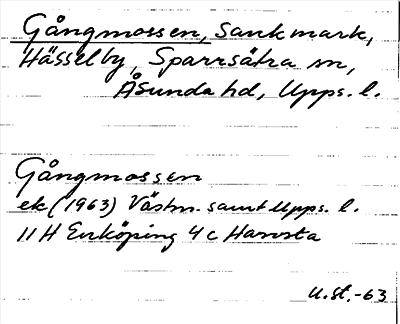 Gångmossen, Sankmark,
Hässelby, Sparrsätra sn,
Åsunda hd, Upps. l.
Gångmossen
ek (1963) Västm. samt Upps. l.
11 H Enköping 4 c Harvsta
U.st.-63